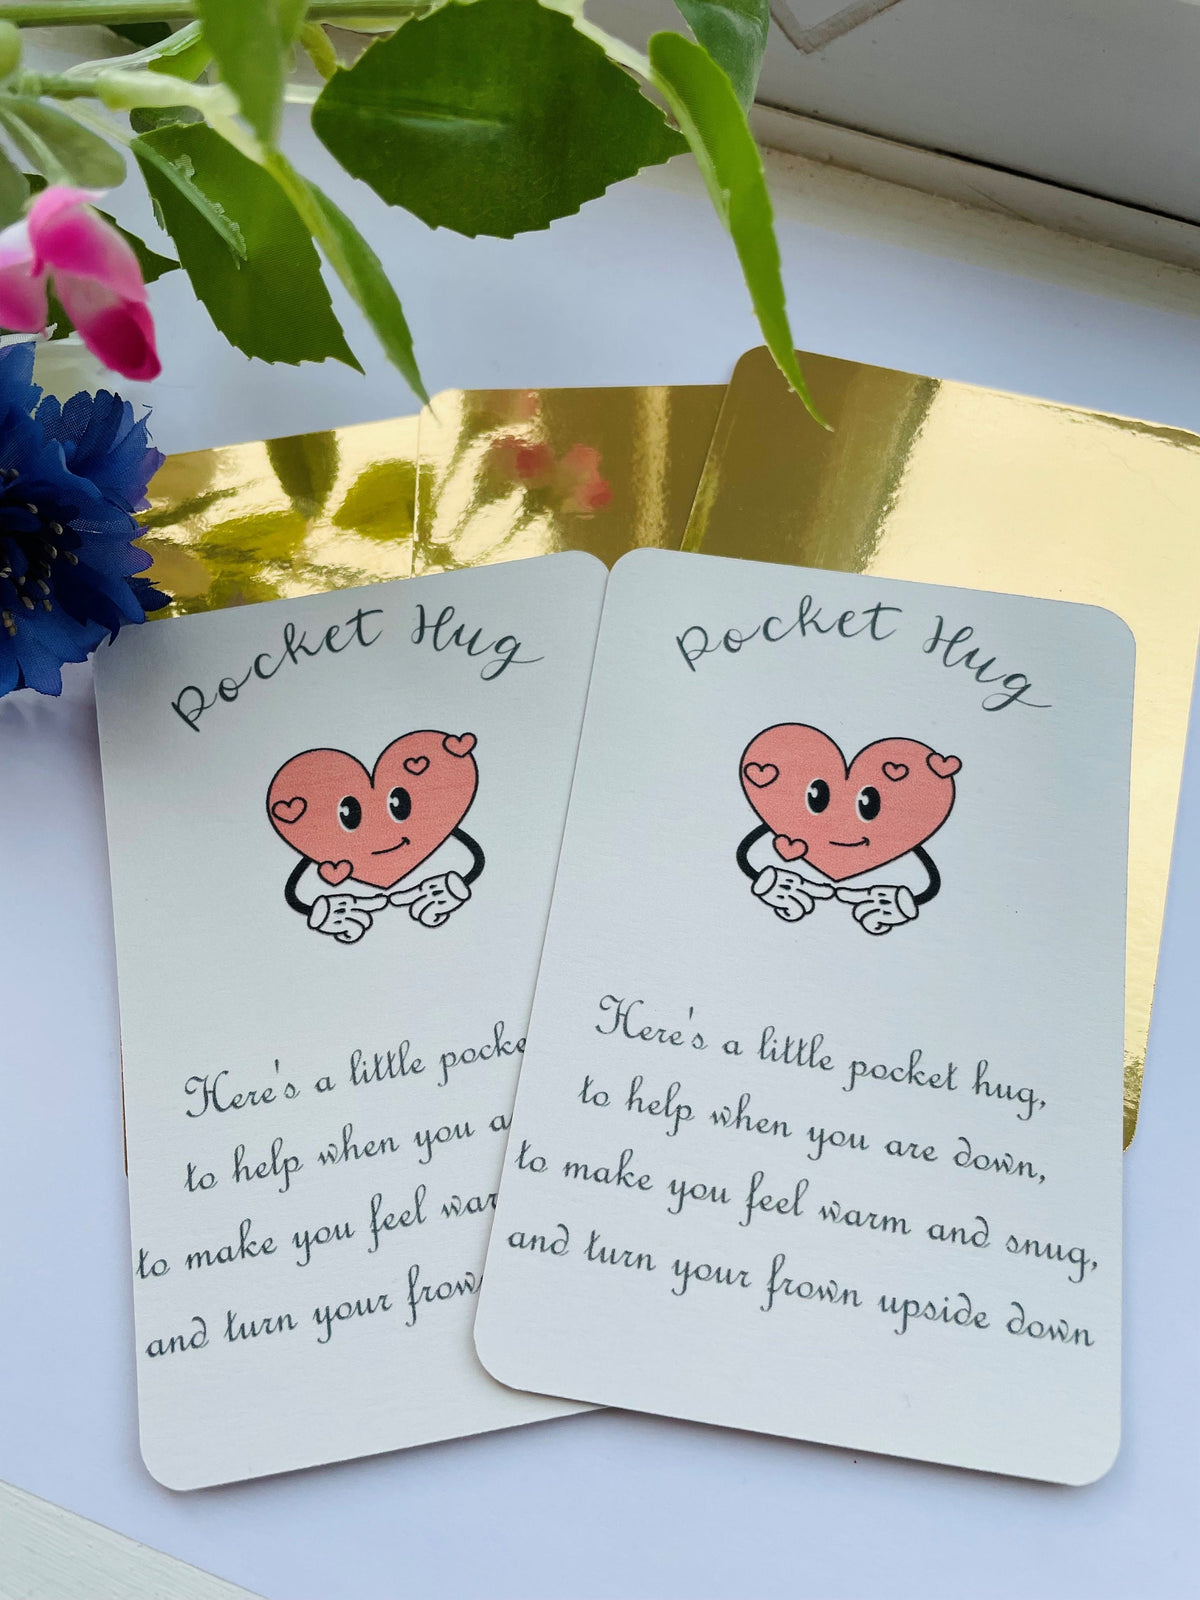 Pocket Hug
Here's a little pocke
to help when you a
to make you feel war
and turn your frow
Pocket Hug
Here's a little pocket hug,
to help when you are down,
to make you feel warm and snug,
and turn your frown upside down